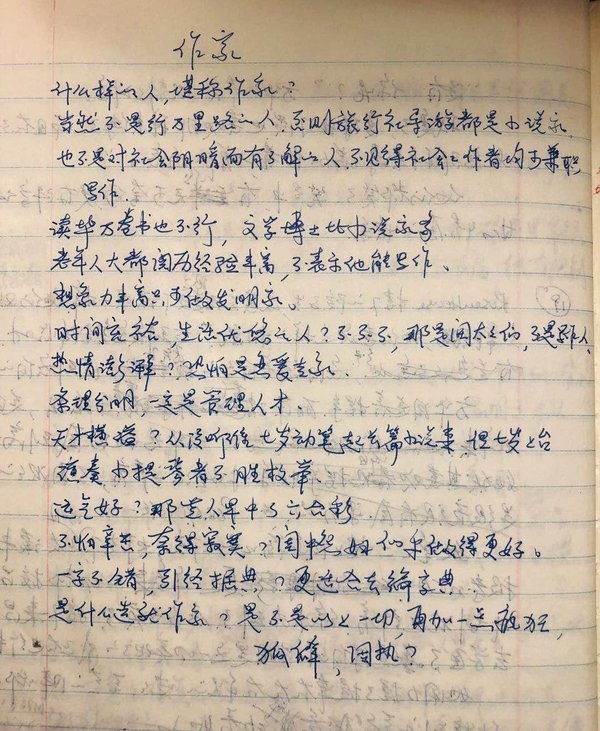 作家
什么样的人，堪称作家？
当然不是行万里路的人，否则旅行社导游都是小说家
也不是对社会阴暗面有了解的人，不见得社会工作者均可兼职
写作．
读毕万卷书也不行，文学博士比小说家多
老年人大都阅历经验丰富，不表示他能写作、
想象力丰富只可做发明家。
时间充裕，生活优悠的人？不不不，那是阔太太们，不是别人、
热情澎湃？恐怕是恋爱专家．
条理分明，一定是管理人才．
天才横溢？从没听谁七岁动笔起长篇小说来，但七岁上台
演奏小提琴者不胜枚举．
运气好？那老人早中了六合彩
不怕辛苦，奈得寂寞？闺中怨妇们早做得更好。
一字不错，引经据典，？更适合去编字典．
是什么造就作家？是不是以上一切，再加一点疯狂，
孤僻，固执？